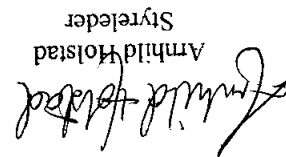 Arnhild Holstad
Arnhild Holstad
Styreleder